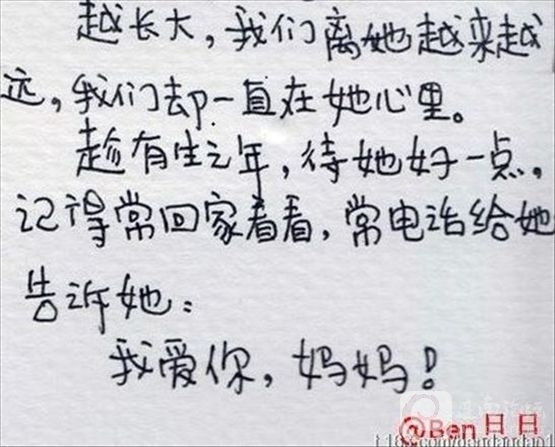 越长大，我们离她越来越
远，我们却一直在她心里。
趁有生之年，待她好一点，
记得常回家看看，常电话给她
告诉她：
我爱你，妈妈！
@Ben日日